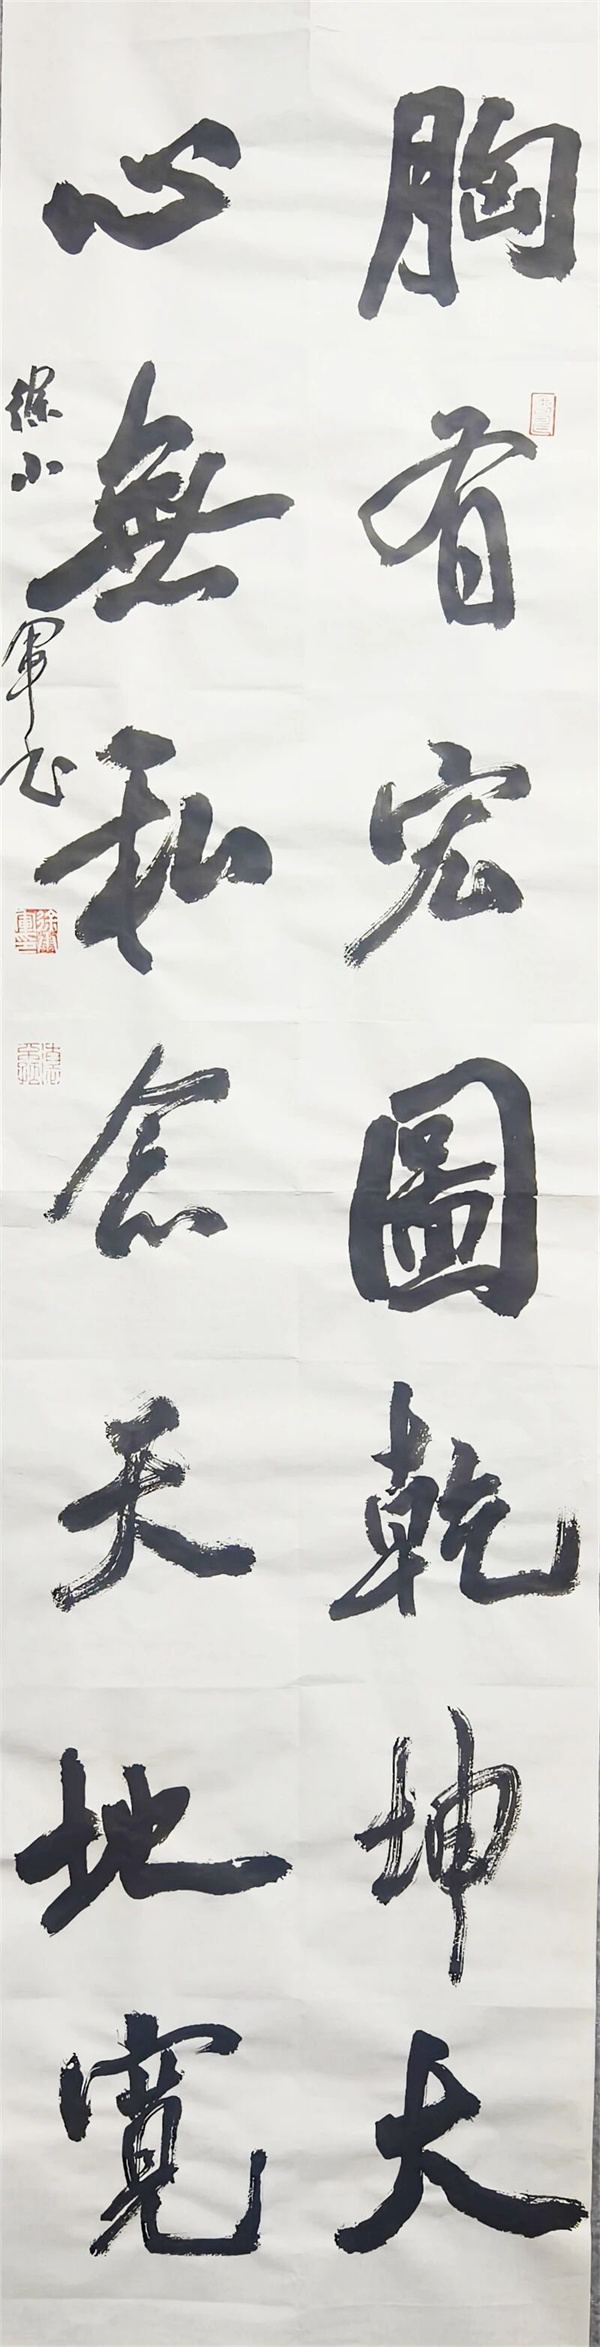 胸有宏圖乾坤大
心無私念天地寬
徐小軍书